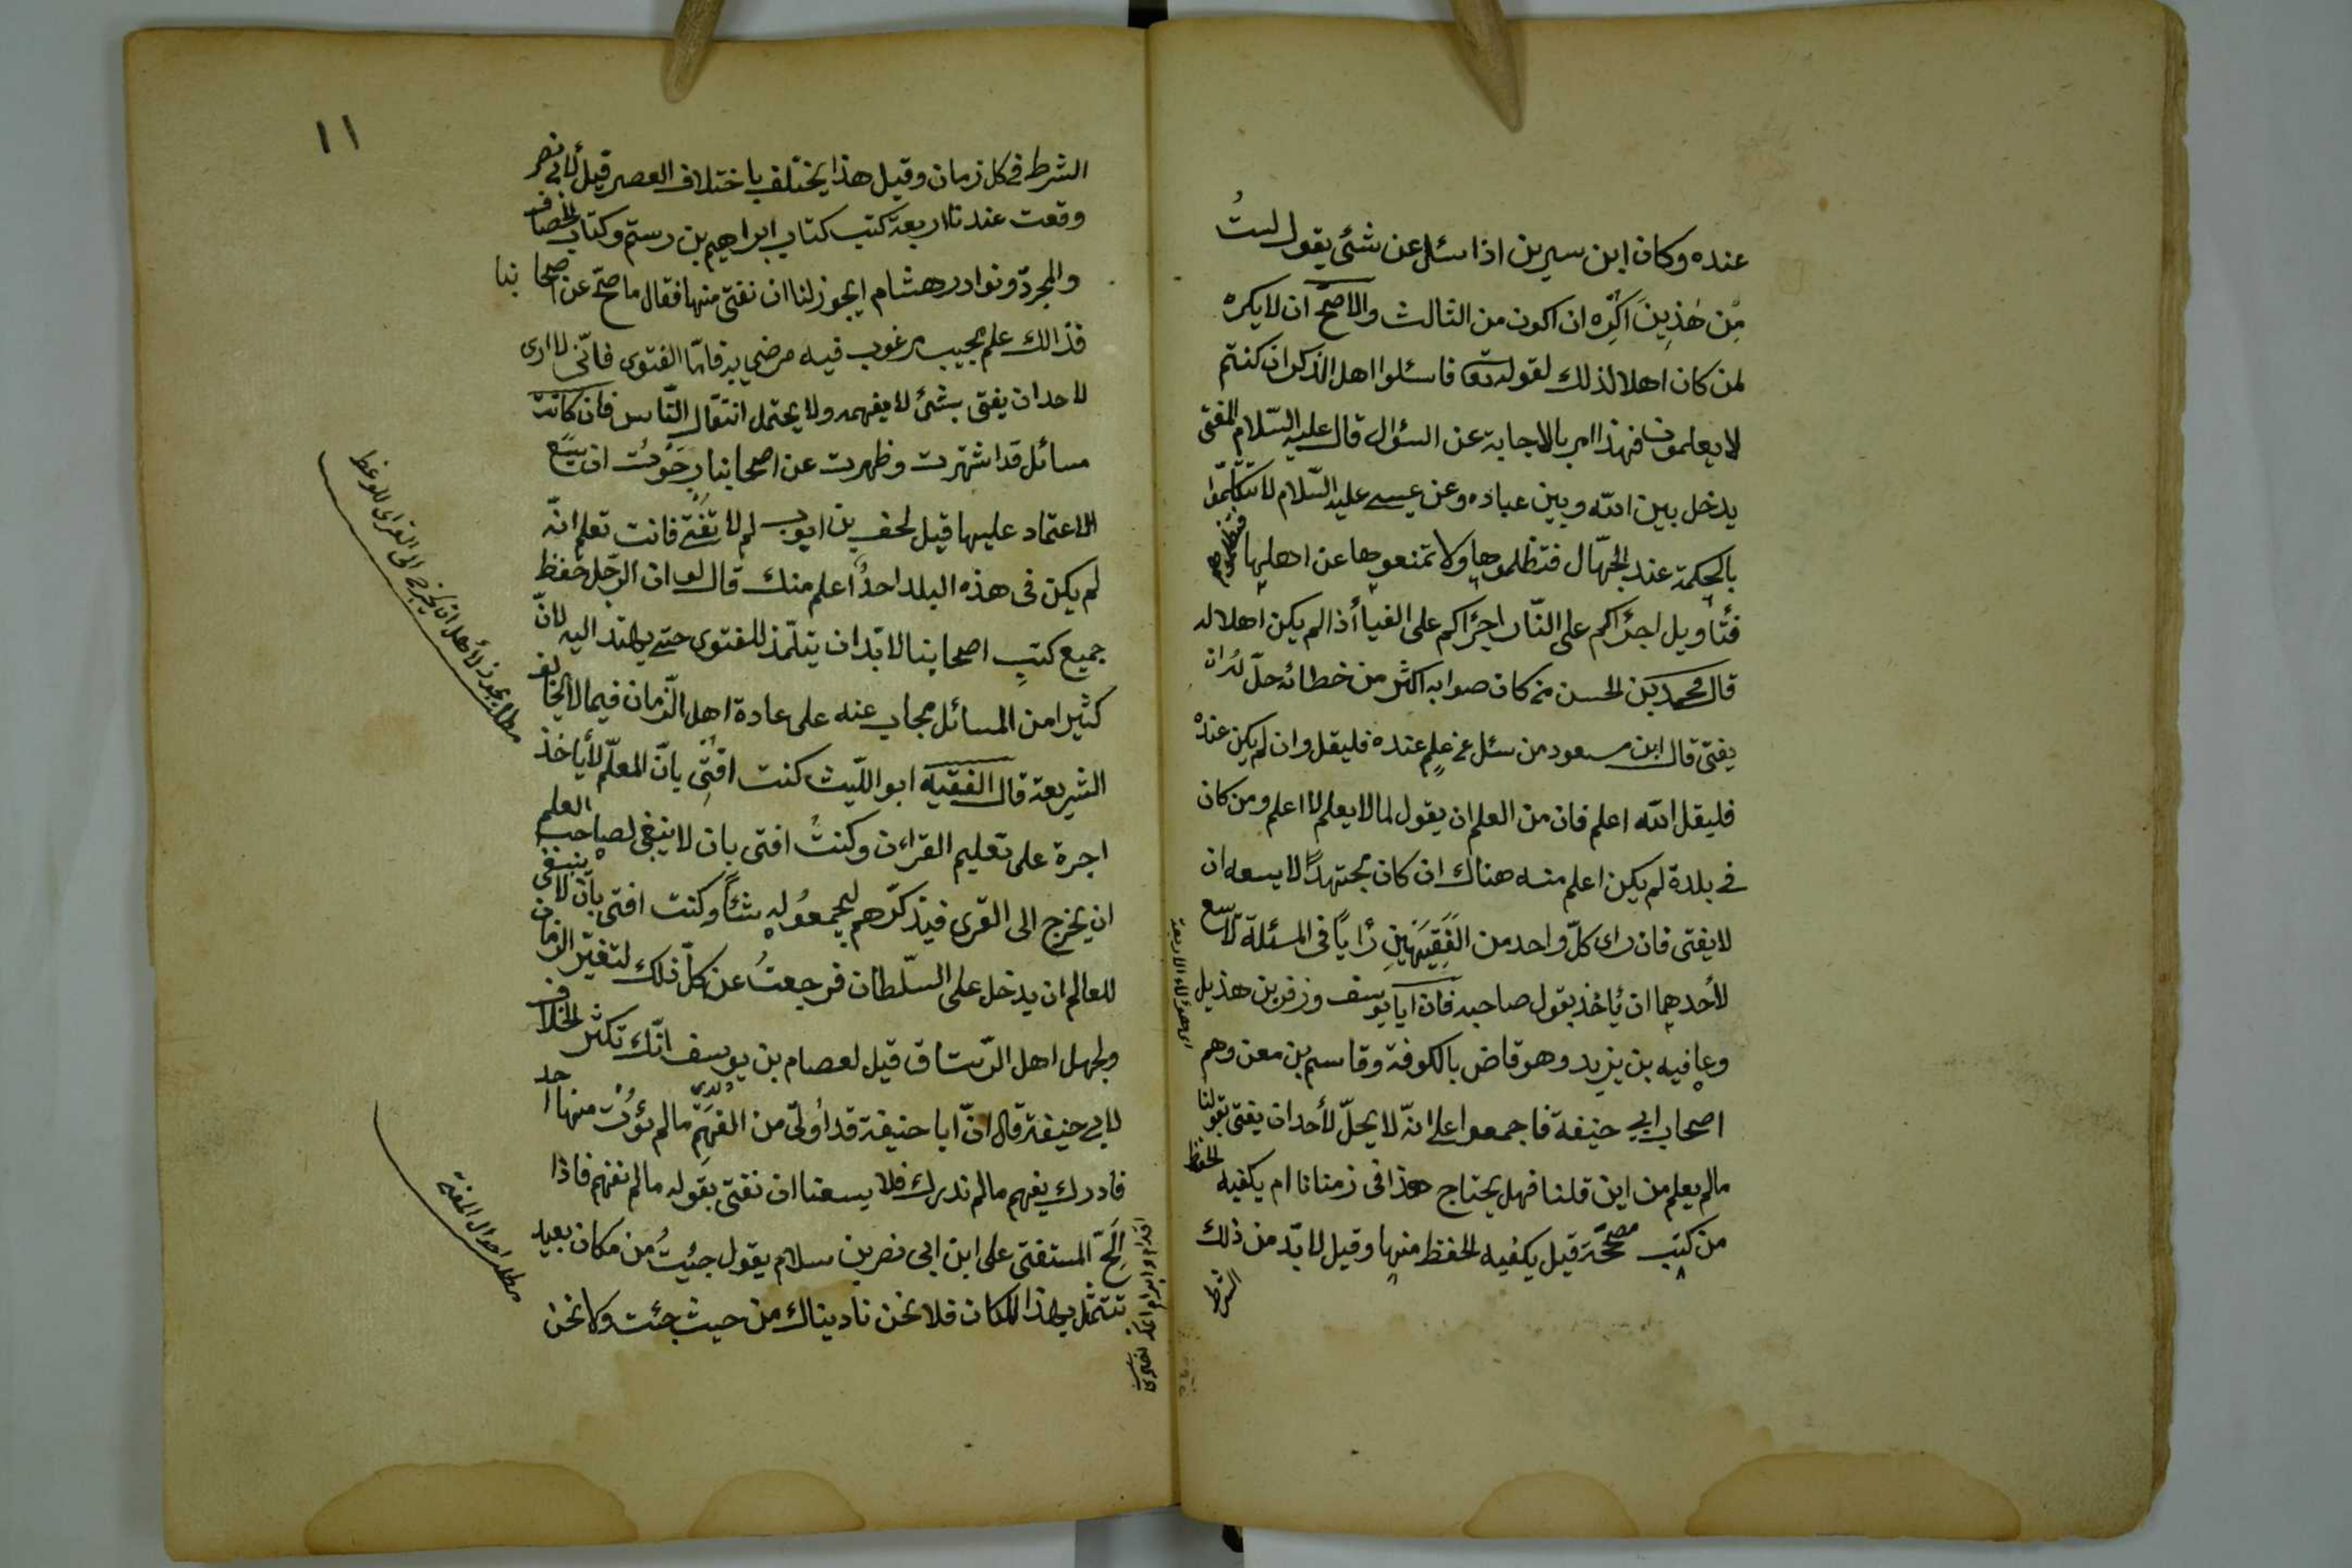 عنده وكان ابن سيرين اذا سئل عن شئ يقول لستُ
مِن هٰذينَ اكره ان اكون من الثالث والاصحّ ان لا يكره
لمن كان اهلا لذلك لقوله تعا فاسئلوا اهل الذكر ان كنتم
لا يعلمون فهذا امر بالاجابة عن السؤال قال عليه السّلام المفتى
يدخل بين الله وبين عباده وعن عيسى عليه السّلام لا تتكلّموا
بالحكمة عند الجهّال فتظلموها ولا تمنعوها عن اهليها فتظلموهم
فتأويل اجرأكم على النّار اجرأكم على الفتيا أذا لم يكن اهلا له
قال محمد بن الحسن من كان صوابه اكثر من خطائه حلّ له ان
يفتى قال ابن مسعود من سئل عن علم عنده فليقل وان لم يكن عنده
فليقل الله اعلم فان من العلم ان يقول لما لا يعلم لا اعلم ومن كان
فى بلدة لم يكن اعلم منه هناك ان كان مجتهدًا لا يسعه ان
لا يفتى فان راى كلّ واحد من الفَقِيهَينِ رأيًا فى المسئلة لا يسع
لأحدهما ان يأخذ بقول صاحبه فان ابا يوسف وزفر بن هذيل
اى هؤلاء الاربعة
وعافيه بن يزيد وهو قاض بالكوفة وقاسم بن معن وهم
اصحاب ابى حنيفة فاجمعوا على انّه لا يحلّ لأحد ان يفتى بقولنا
مالم يعلم من اين قلنا فهل يحتاج هذا فى زمننا ام يكفيه الحفظ
من كتب مصحّحة قيل يكفيه الحفظ منها وقيل لا بدّ من ذلك
الشرط
١١
الشرط فى كل زمان وقيل هذا يختلف باختلاف العصر قيل لأبى نصر
وقعت عندنا اربعة كتب كتاب ابراهيم بن رستم وكتاب الخصاف
والمجرد ونوادر هشام ايجوز لنا ان نفتى منها فقال ما صحّ عن اصحابنا
فذالك علم مجيب مرغوب فيه مرضى به فامّا الفتوى فانّى لا ارى
لاحد ان يفتى بشئ لا يفهمه ولا يحتمل انتقال النّاس فان كانت
مسائل قد اشتهرت وظهرت عن اصحابنا رجَوْت ان يسَع
الاعتماد عليها قيل لخلف بن ايوب لم لا تفتى فانت تعلم انّه
لم يكن فى هذه البلد احدٌ اعلم منك قال لو ان الرجل حفظ
جميع كتب اصحابنا لا بدّ ان يتلمّذ للفتوى حتى يهتد اليه لانّ
كثيرا من المسائل مجاب عنه على عادة اهل الزّمان فيما لا يخالف
الشريعة قال الفقيه ابو اللّيث كنت افتى بانّ المعلّم لا يأخذ
مطلب يجوز لأهل ان يخرج الى القرى للوعظ
اجرة على تعليم القرآن وكنتُ افتى بان لا ينبغى لصاحب العلم
ان يخرج الى القرى فيذكّرهم ليجمعوُ له شئًا وكنت افتى بان لا ينبغى
للعالم ان يدخل على السّلطان فرجعتُ عن كلّ ذلك لتغيّر الزمان
ولجهل اهل الرّستاق قيل لعصام بن يوسف انّك تكثر الخلاف
لابى حنيفة قال انّ ابا حنيفة قد أوتى من الفهم مالم يؤت منها احد
فادرك بفهم مالم ندرك فلا يسعنا ان نفتى بقوله مالم نفهم فاذا
مطلب احوال المفتى
اَلَحّ المستفتى على ابن ابى نصر بن سلام يقول جئتُ من مكان بعيد
تتمثّل بهذا المكان فلا نحن ناديناك من حيث جئت ولا نحن